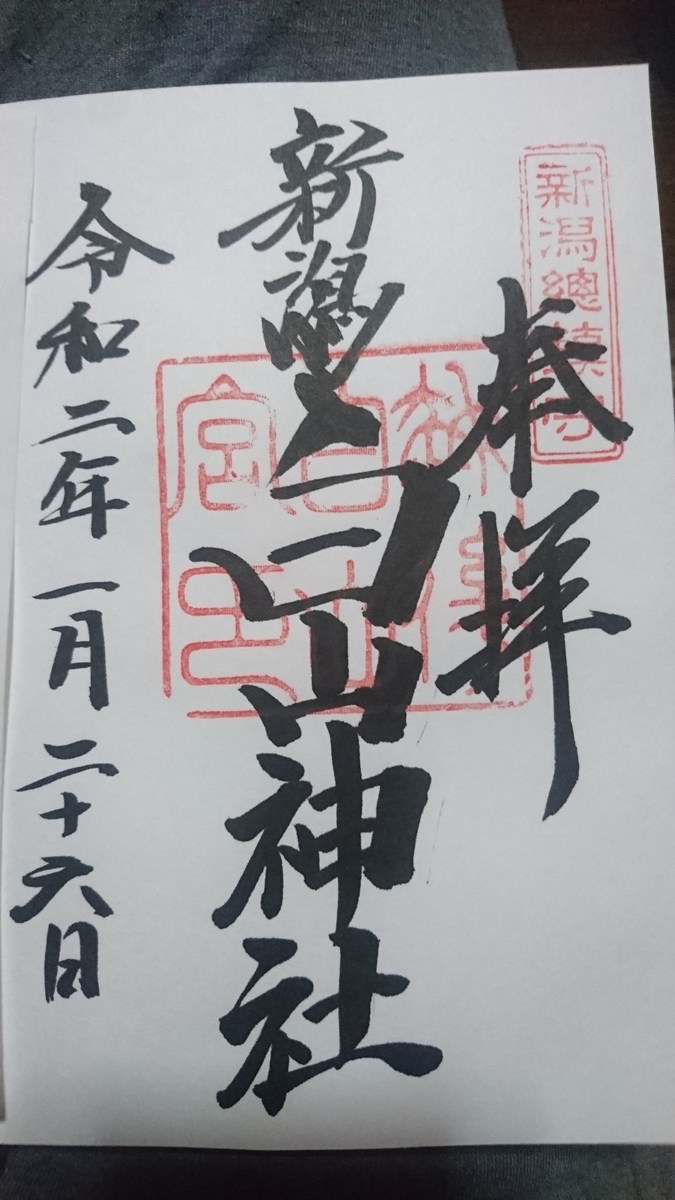 新潟總鎮守
奉拝
新潟白山神社
令和二年一月二十六日